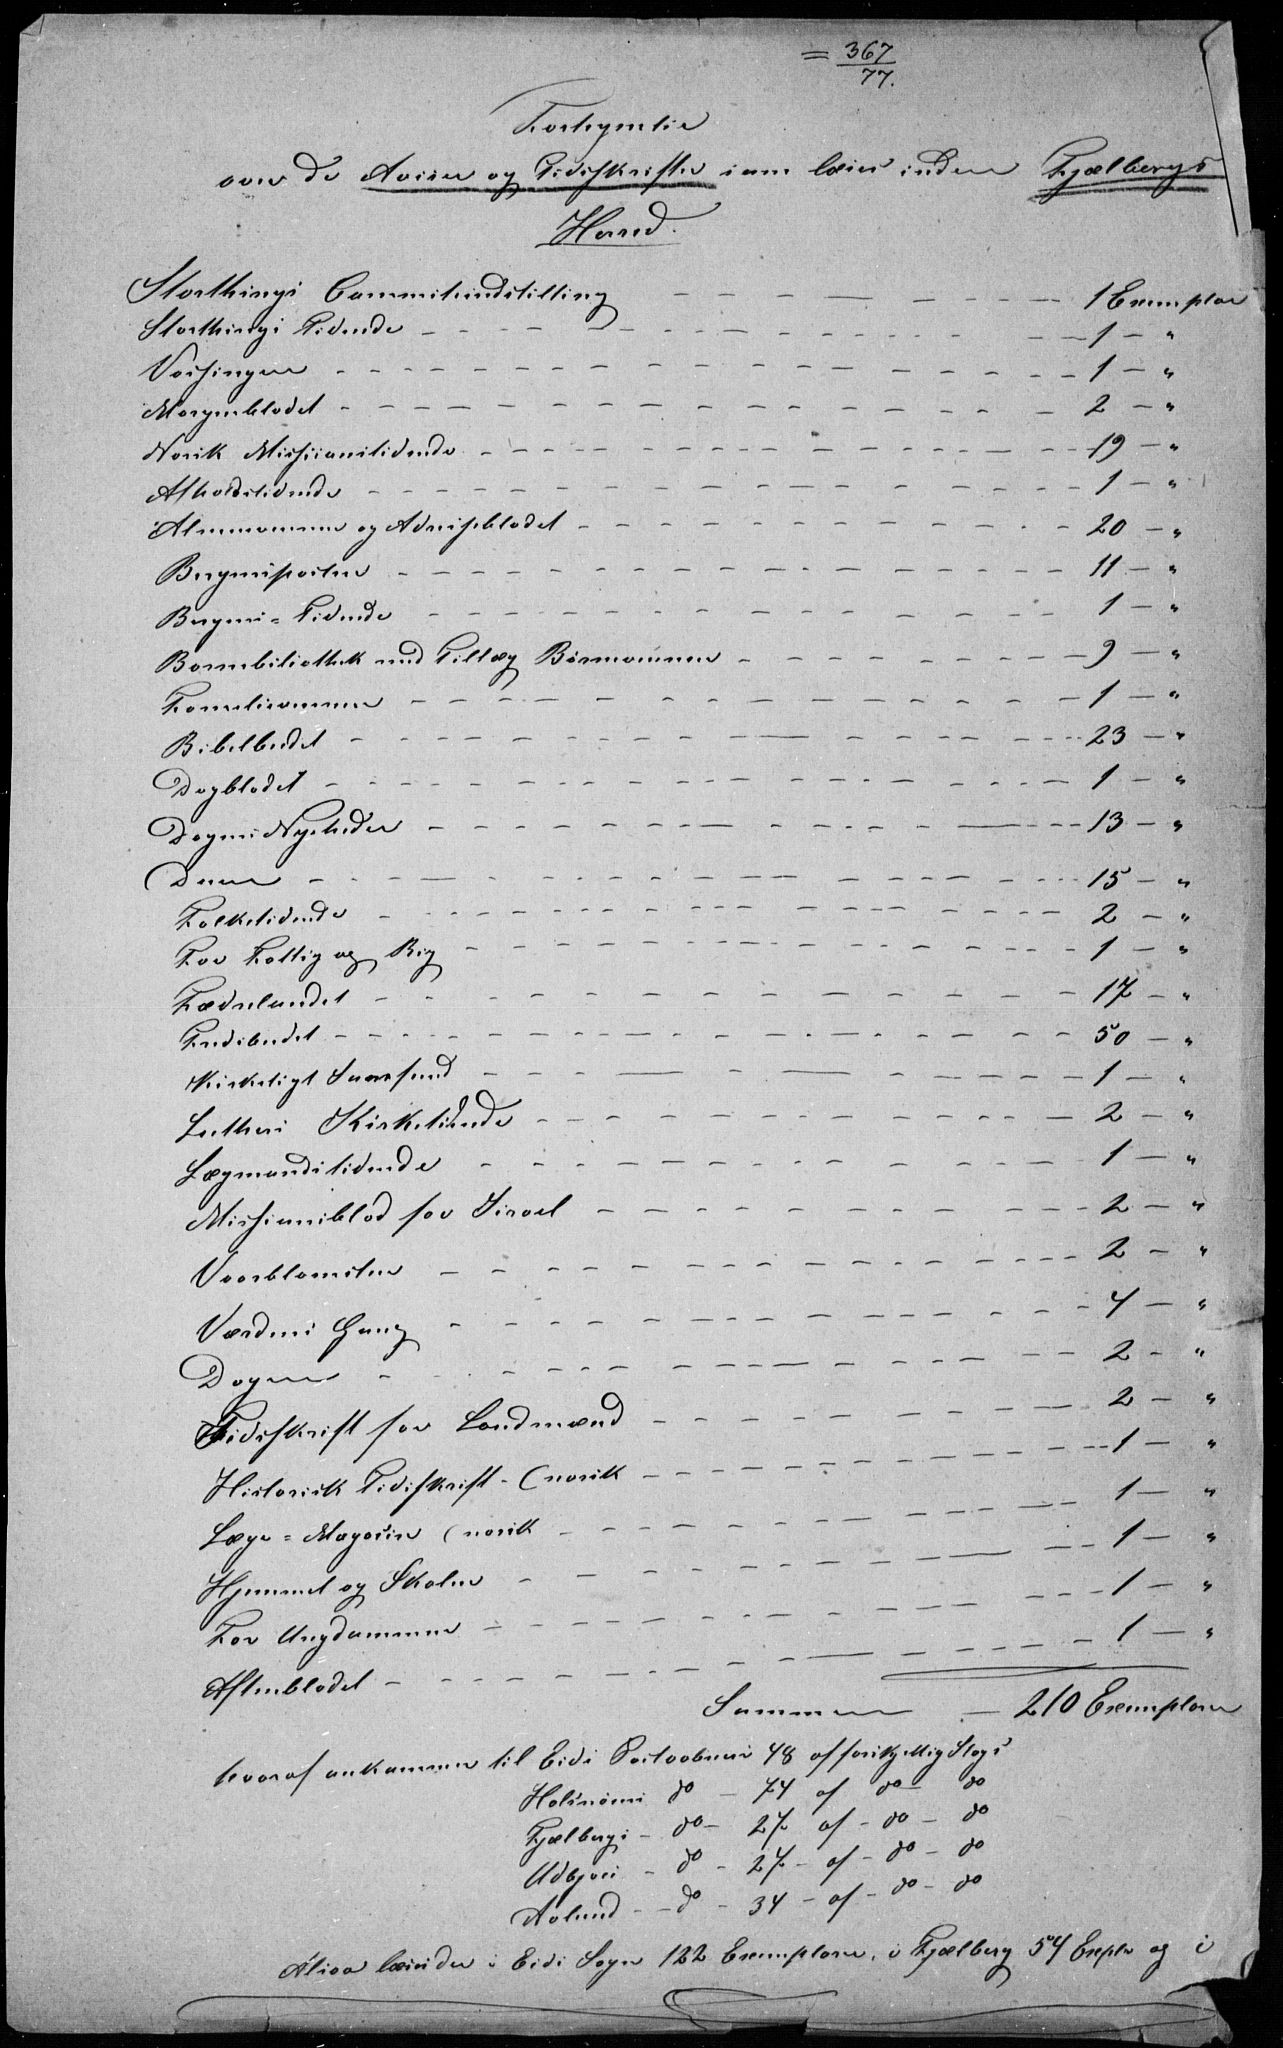 = 367/77.
Fortegnelse
over de Aviser og Tidsskrifter som læses inden Fjælbergs
Herred.
Storthings Committeindstilling - - - 1 Exemplar
Storthings Tidende - - - 1 - "
Vossingen - - - 1 - "
Morgenbladet - - - 2 - "
Norsk Missionstidende - - - 19 - "
Afholdstidende - - - 1 - "
Almuevennen og Adresseblodet - - - 20 - "
Bergensposten - - - 11 - "
Bergens=Tidende - - - 1 - "
Børnebibliothek med Tillæg Børnevennen - - - 9 - "
Familievennen - - - 1 - "
Bibelbudet - - - 23 - "
Dagbladet - - - 1 - "
Dagens Nyheder - - - 13 - "
Duen - - - 15 - "
Folketidende - - - 2 - "
For Fattig og Rig - - - 1 - "
Fædrelandet - - - 17 - "
Fredsbudet - - - 50 - "
Kirkeligt Samfund - - - 1 - "
Luthersk Kirketidende - - - 2 - "
Lægmandstidende - - - 1 - "
Missionsblad for Israel - - - 2 - "
Vaarblomsten - - - 2 - "
Verdens Gang - - - 4 - "
Dagen - - - 2 - "
Tidsskrift for Landmænd - - - 2 - "
Historisk Tidsskrift - (norsk - - - 1 - "
Læge=Magasin (norsk - - - 1 - "
Hjemmet og Skolen - - - 1 - "
For Ungdommen - - - 1 - "
Aftenbladet - - - 1 - "
Summen - 210 Exemplarer
hvoraf ankommer til Eids Postaabneri 48 af forskjellig Slags
Halsnøens do - 74 af do - do
Fjælbergs - do - 27 af - do - do
Utbjoes - do - 27 - af - do - do
Ølund - - do - 34 - af - do - do
Altsaa læses der i Eids Sogn 122 Exemplarer, i Fjælberg 54 Explr og i